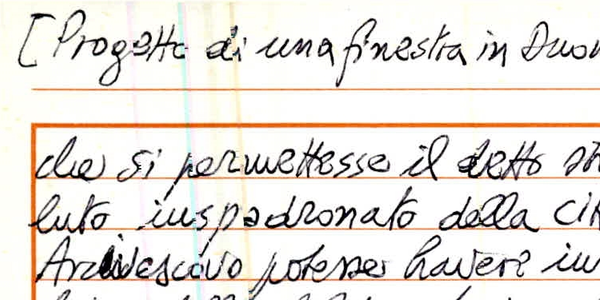 [Progetto di una finestra in Duom
che si permettesse il detto
luto iuspadronato della cit
Arcivescovo potesse havere in